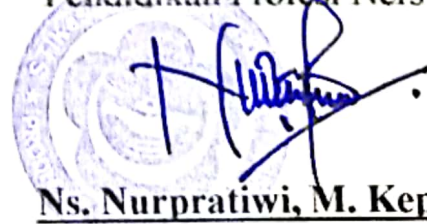 Pendidikan Profesi Ners
Ns. Nurpratiwi, M. Kep